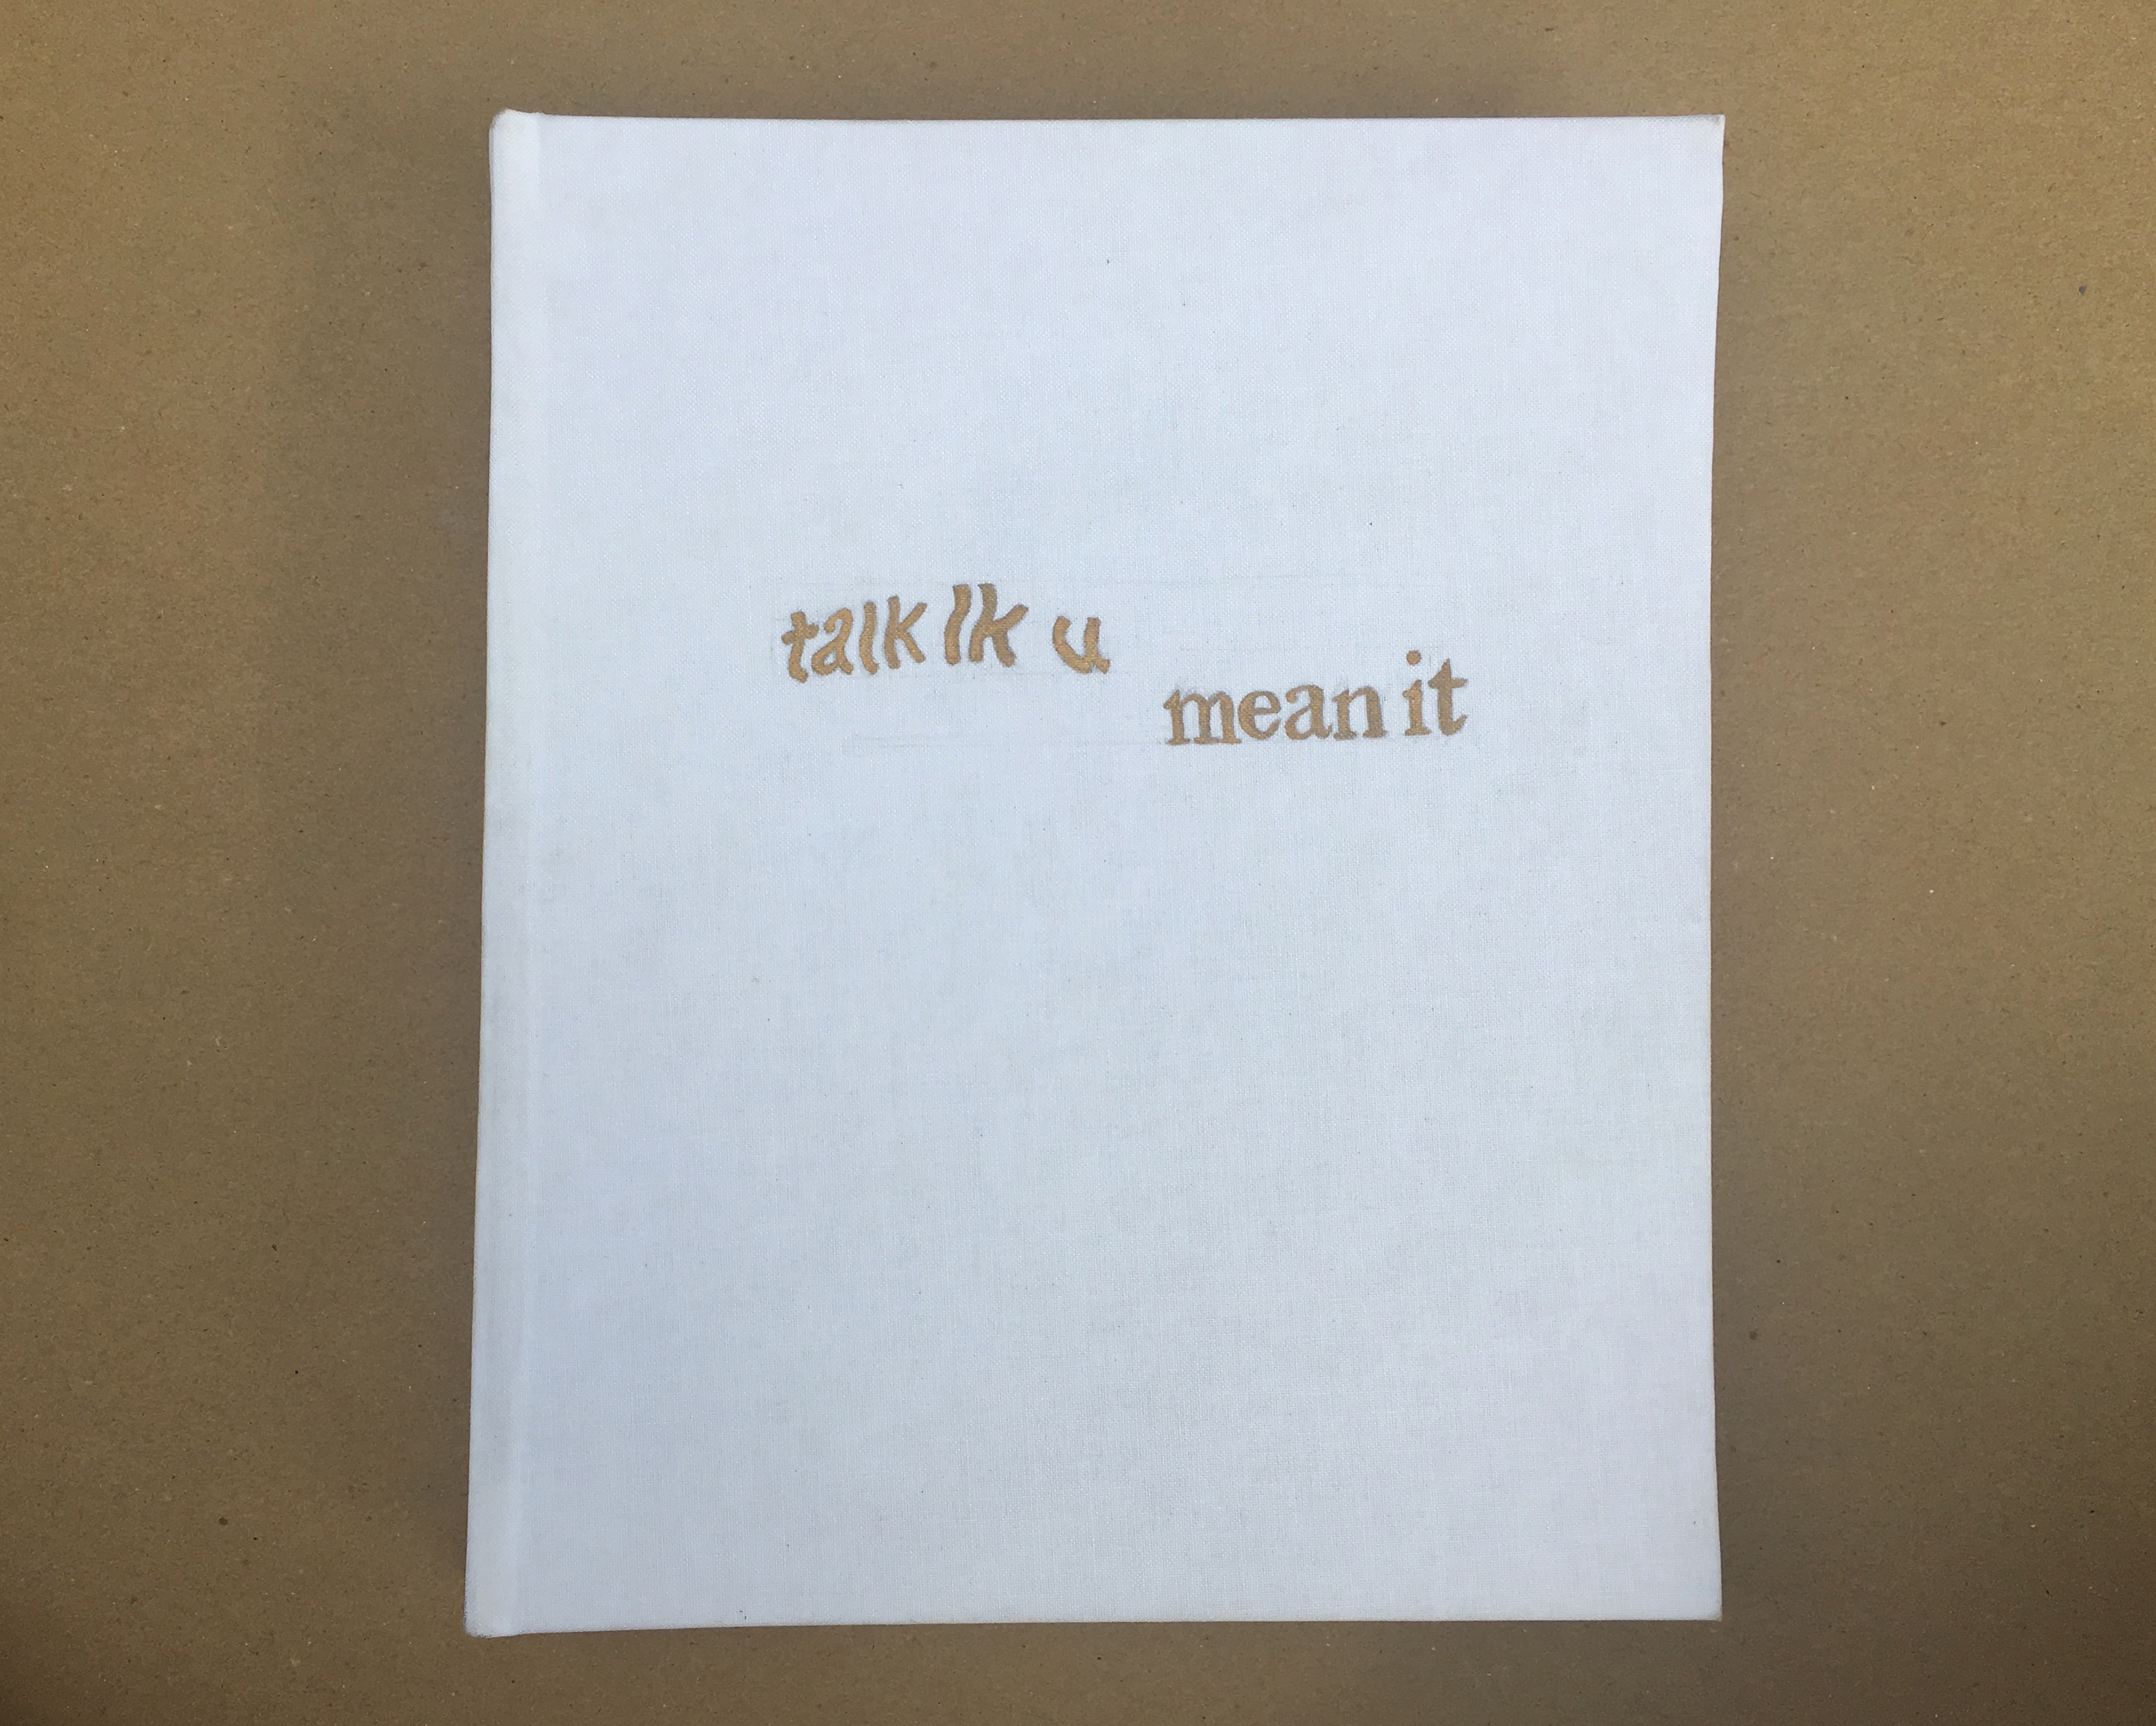 talk lk u
mean it